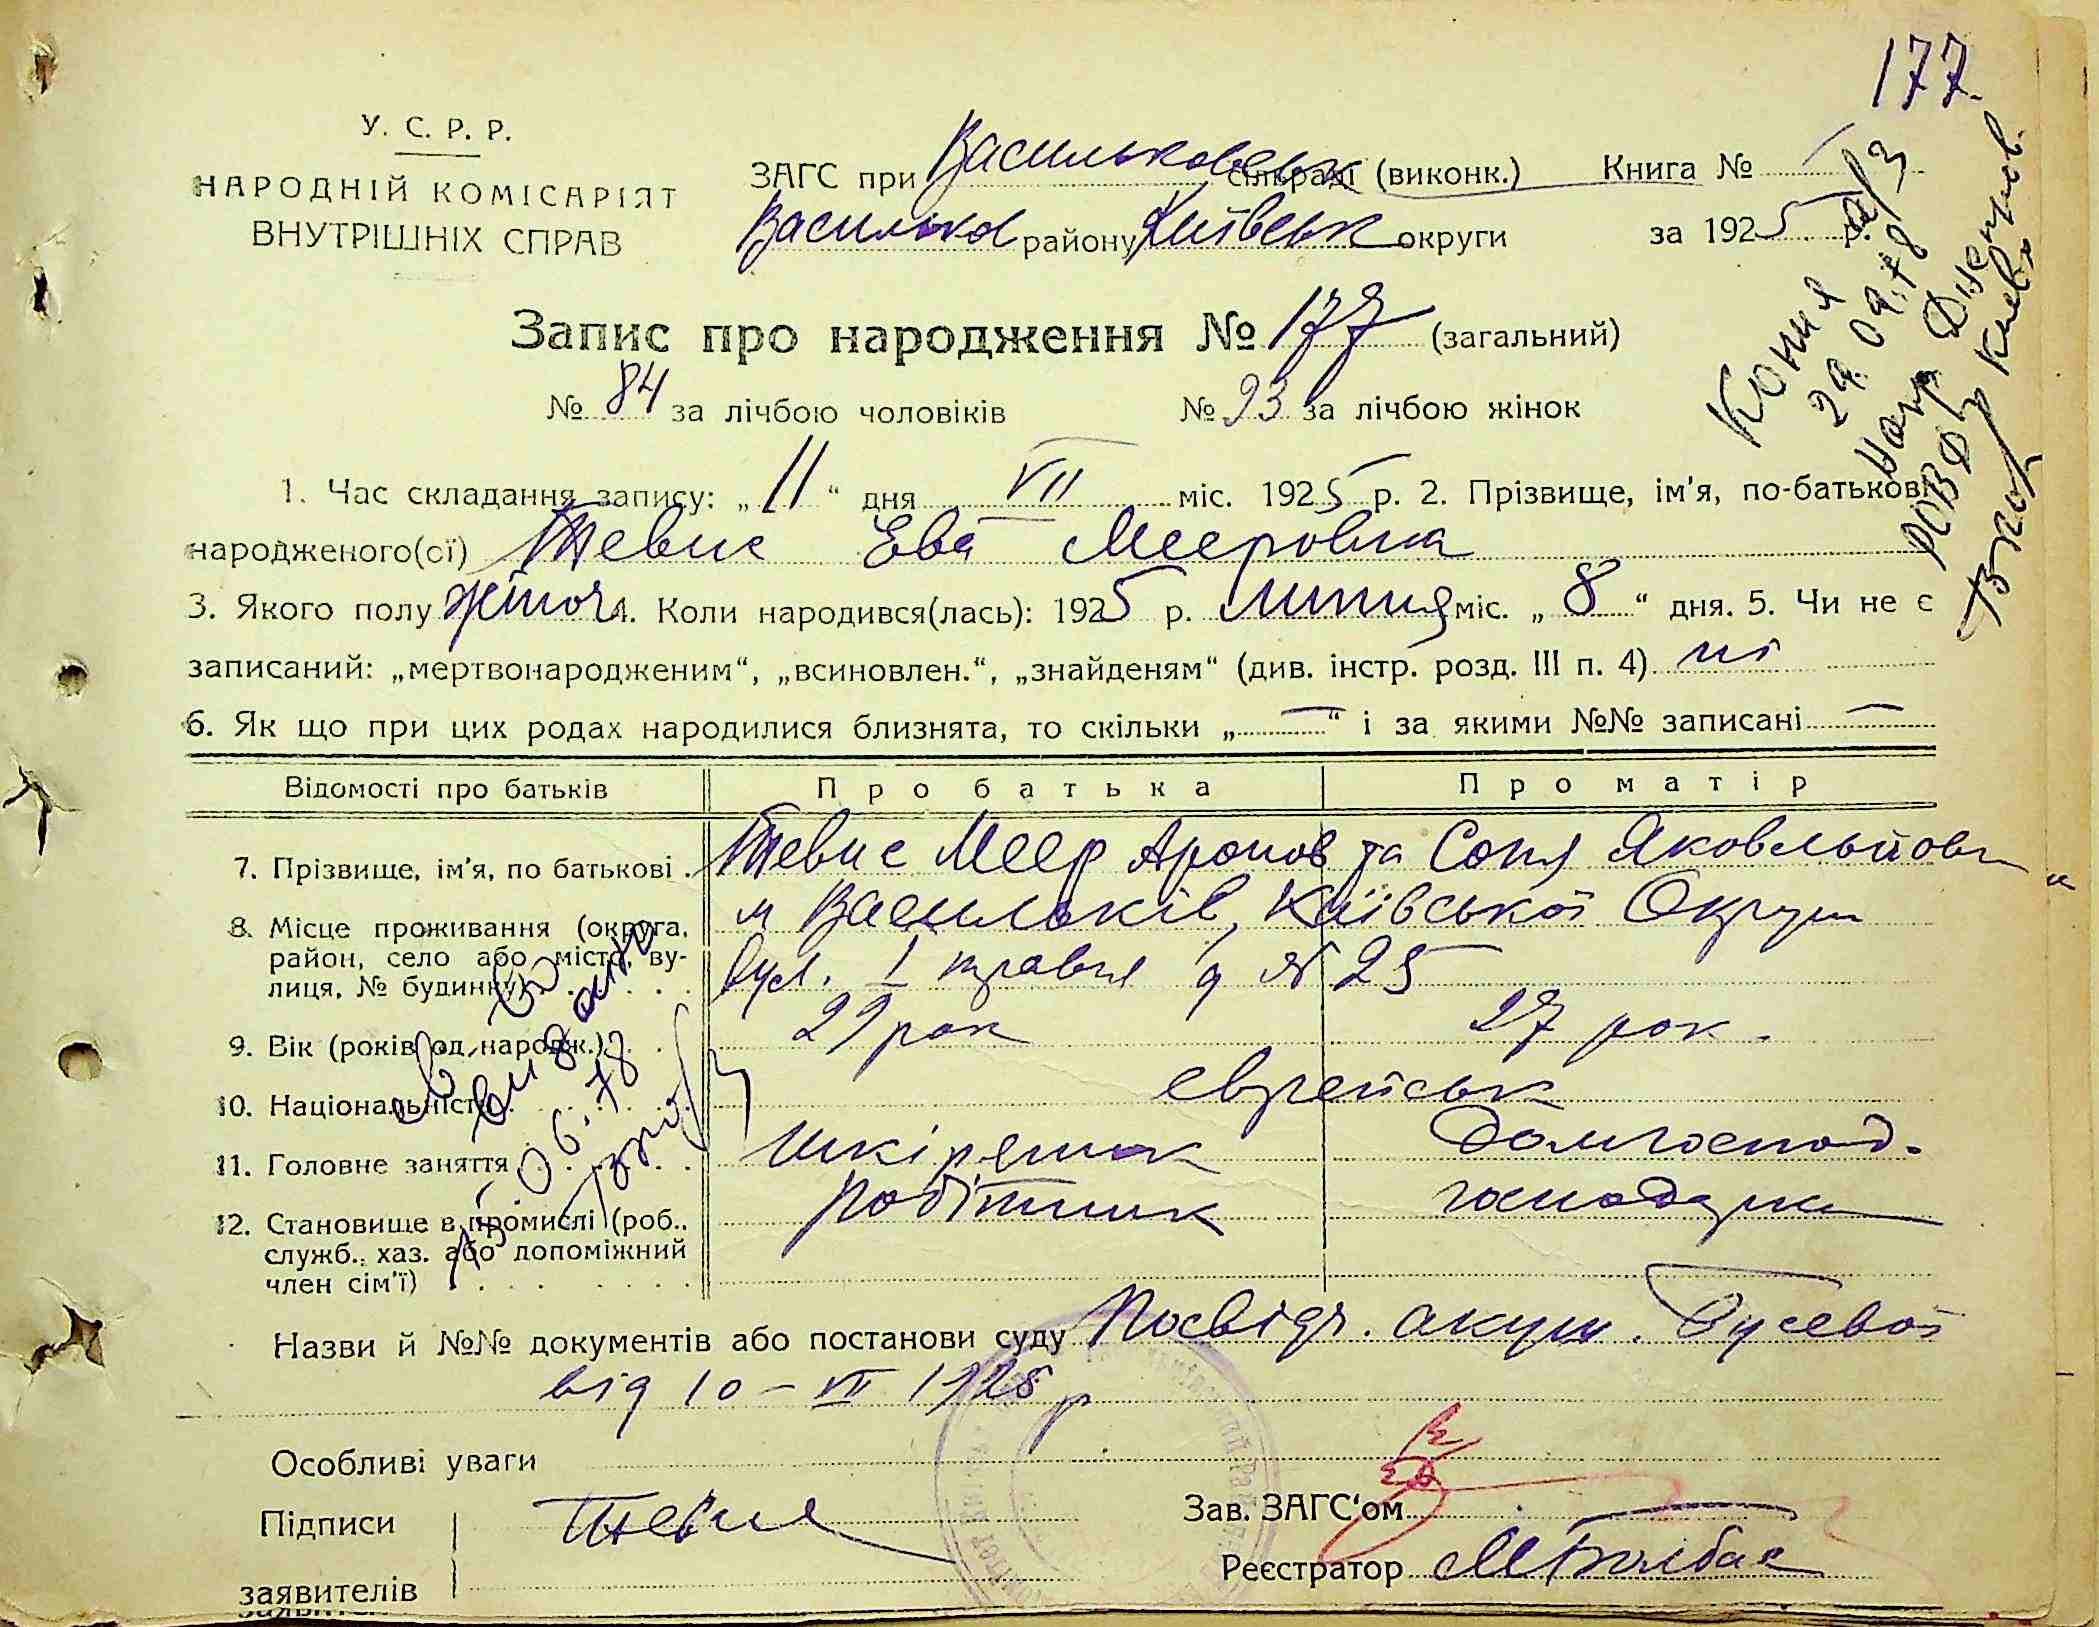 177.
У. С. Р. Р.
НАРОДНІЙ КОМІСАРІЯТ
ВНУТРІШНІХ СПРАВ
ЗАГС при Васильковськ сільраді (виконк.) Книга №
Василько району Київськ округи за 1925 р.
Копия
29.09.78
Запис про народження № 177 (загальний)
№ 84 за лічбою чоловіків № 93 за лічбою жінок
1. Час складання запису: „11“ дня VII міс. 1925 р. 2. Прізвище, ім'я, по-батькові
народженого(ої) Тевис Ева Мееровна
3. Якого полу жіноч 4. Коли народився(лась): 1925 р. липня міс. „8“ дня. 5. Чи не є
записаний: „мертвонародженим“, „всиновлен.“, „знайденям“ (див. інстр. розд. III п. 4) ні
6. Як що при цих родах народилися близнята, то скільки „—“ і за якими №№ записані —
Відомості про батьків Про батька Про матір
7. Прізвище, ім'я, по батькові . Тевис Меер Аронов та Соня Яковльовн
8. Місце проживання (округа, район, село або місто, вулиця, № будинку) м Васильків, Київської Округи
вул. І травня д № 25
9. Вік (років од народж.) 29 рок 27 рок.
10. Національність еврейськ
11. Головне заняття шкіряник домгоспод.
12. Становище в промислі (роб., служб., хаз. або допоміжний член сім'ї) робітник господарка
видано
15.06.78
Назви й №№ документів або постанови суду Посвідч. акуш. Гусевої
від 10-VII 1925 р
Особливі уваги
Підписи заявителів Тевис
Зав. ЗАГС'ом
Реєстратор МБалбас